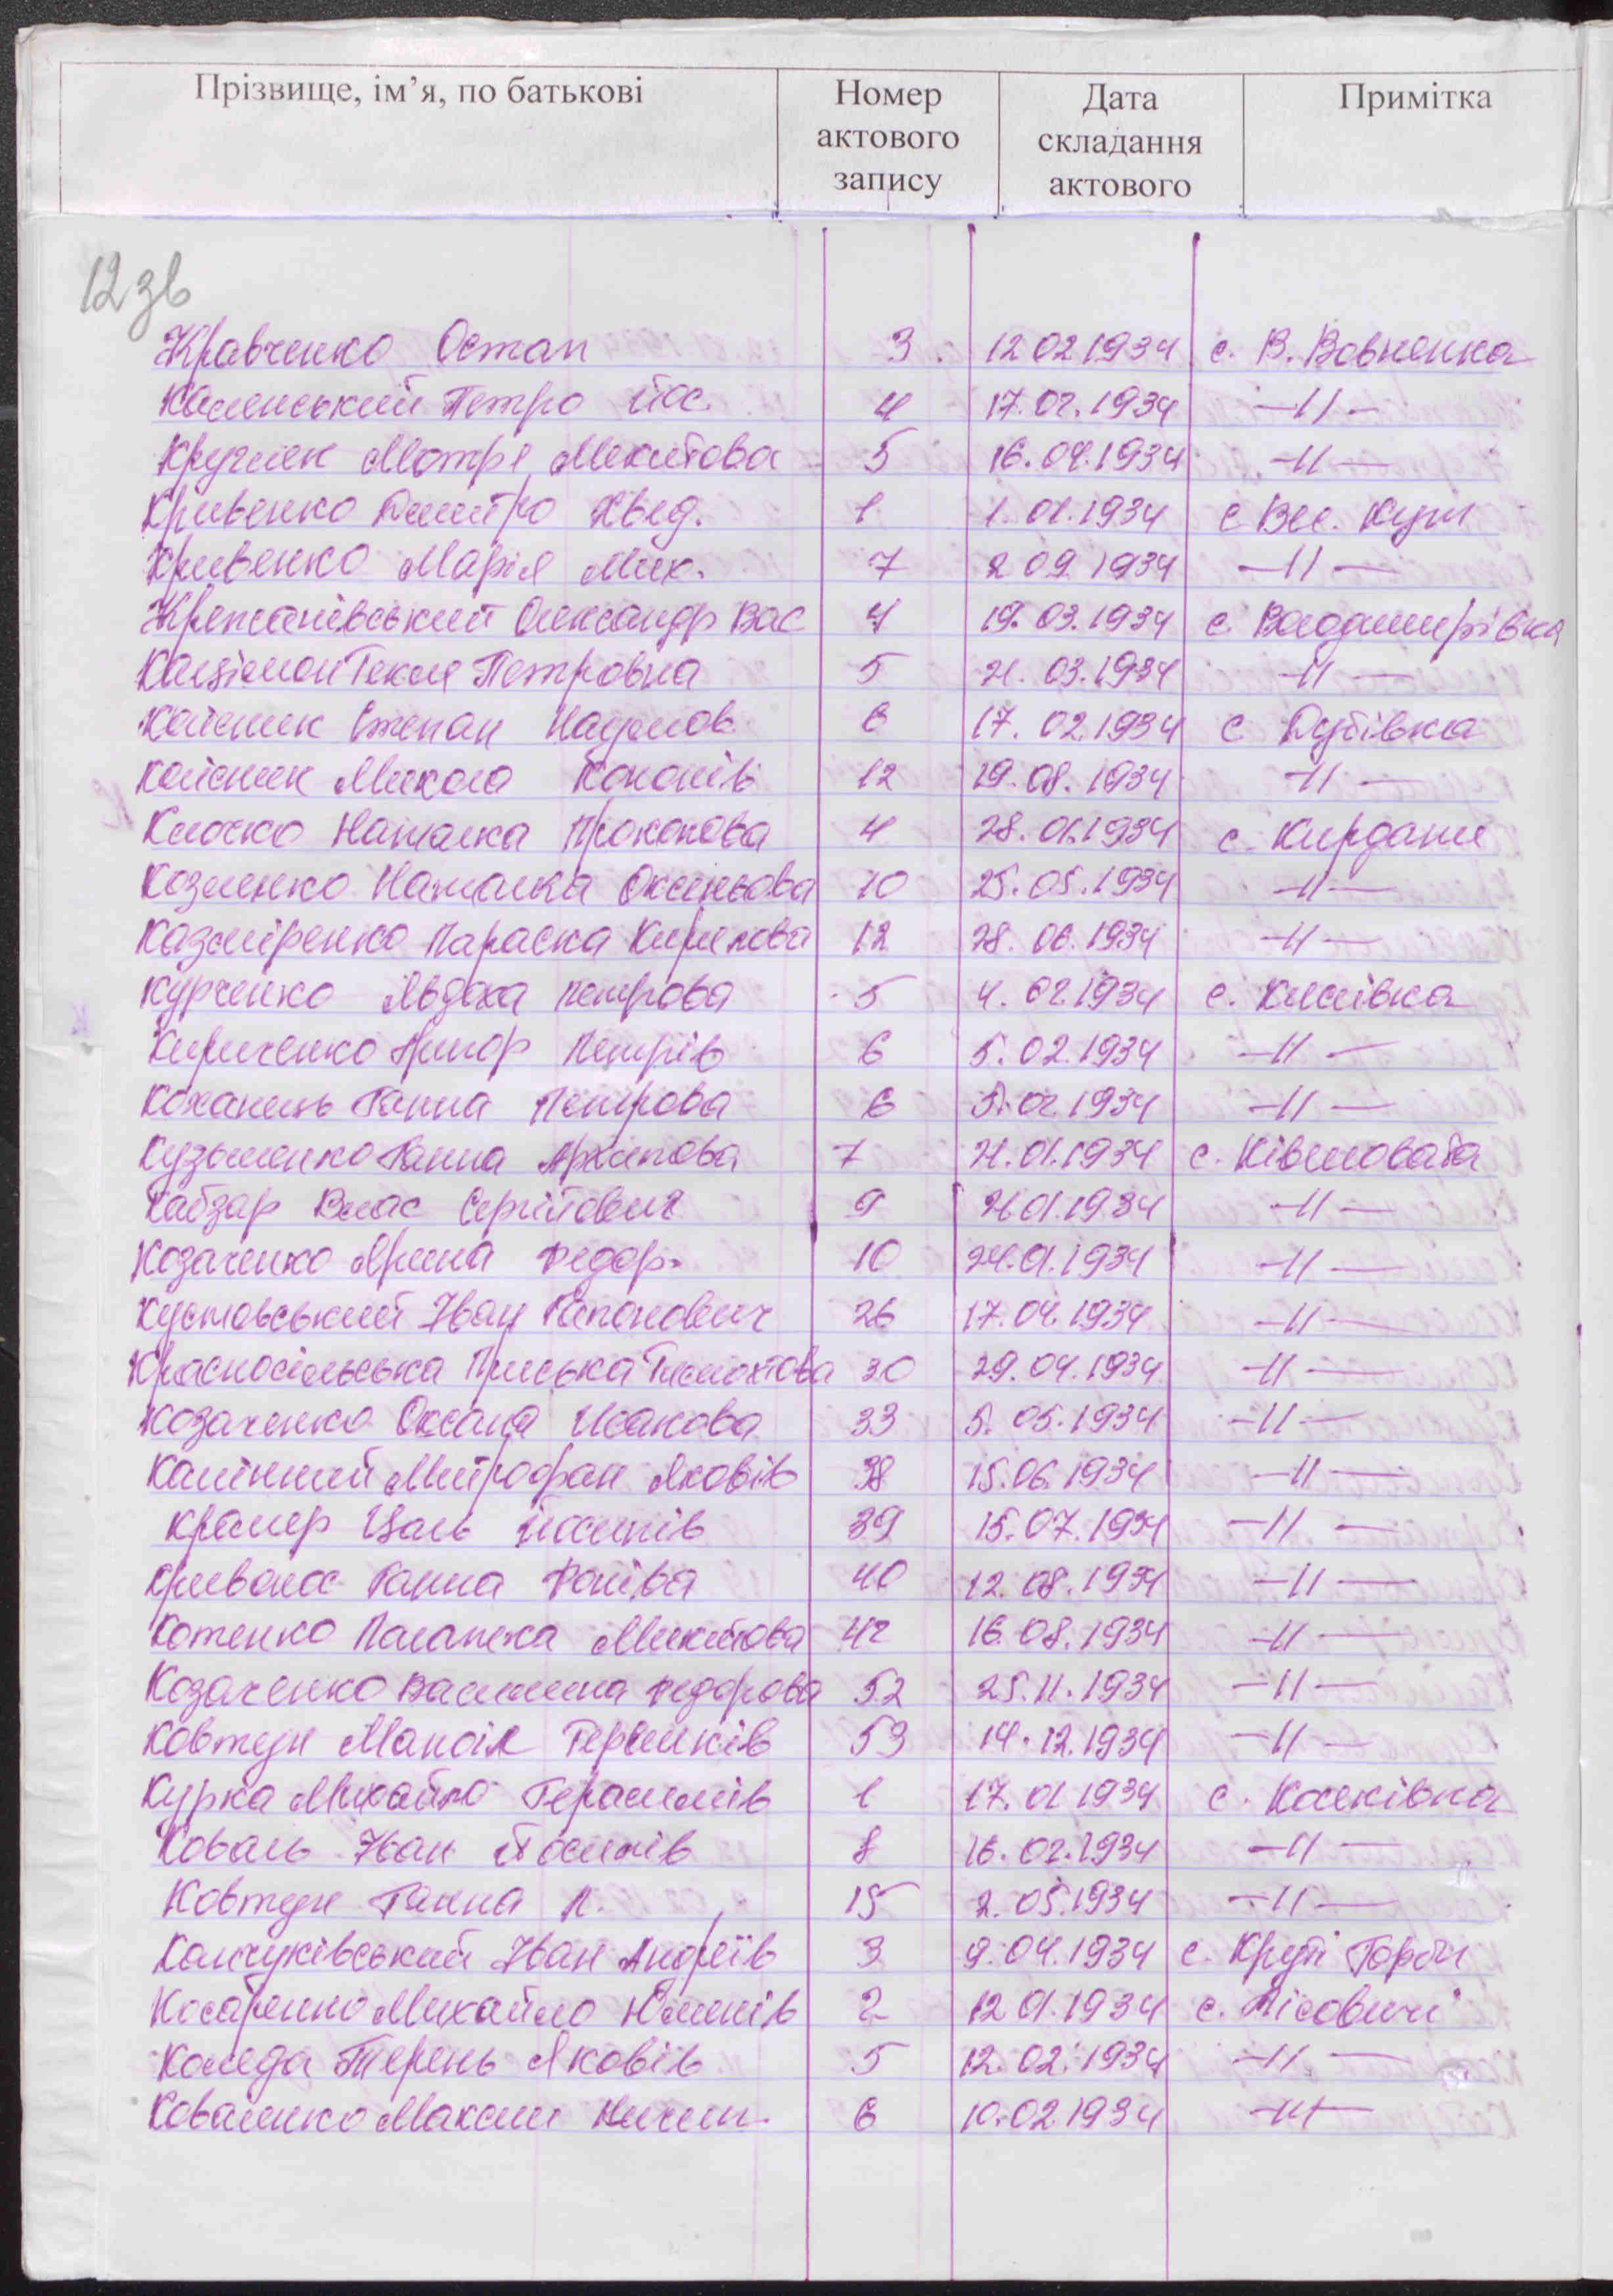 Прізвище, ім’я, по батькові Номер актового запису Дата складання актового Примітка
12 зв
Кравченко Остап 3. 12 02 1934 с. В. Вовнянка
Каменський Петро Йос. 4 17.02.1934 —11—
Кругляк Мотря Микитова 5 16.04.1934 —11—
Кривенко Дмитро Хвед. 1 1.01.1934 с Вел. Кути
Кривенко Марія Мик. 7 2 09 1934 —11—
Кржанівський Олександр Вас 4 19.03.1934 с. Володимирівка
Текля Петровна 5 21.03.1934 —11—
Колісник Степан Наумов 6 17.02.1934 с Дубівка
Колісник Микола Кононів 12 19.08.1934 —11—
Клочко Наталка Прокопова 4 28.01.1934 с. Кирдани
Козленко Наталка Оксеньова 10 25.05.1934 —11—
Казміренко Параска Кирилова 12 28.06.1934 —11—
Курченко Явдоха Петрова 5 4.02.1934 с. Кислівка
Кириченко Григор Петрів 6 5.02.1934 —11—
Коханець Ганна Петрова 6 5.02.1934 —11—
Кузьменко Ганна Архипова 7 21.01.1934 с. Ківшовата
Кабзар Влас Сергійович 9 21.01.1934 —11—
Козаченко Ярина Федор. 10 24.01.1934 —11—
Кустовський Іван Гапонович 26 17.04.1934 —11—
Красносільська Приська Тимохтова 30 29.04.1934 —11—
Козаченко Оксана Исакова 33 5.05.1934 —11—
Калінний Митрофан Яковів 38 15.06.1934 —11—
Крамер Цаль Йосипів 39 15.07.1934 —11—
Кривонос Ганна Фоківа 40 12.08.1934 —11—
Котенко Палажка Микитова 42 16.08.1934 —11—
Козаченко Василина Федорова 52 25.11.1934 —11—
Ковтун Манойл Гервасіїв 53 14.12.1934 —11—
Курка Михайло Герасимів 1 17.01 1934 с. Косяківка
Коваль Іван Йосипів 8 16.02.1934 —11—
Ковтун Ганна П. 15 2.05.1934 —11—
Колчуківський Іван Андріїв 3 9.04.1934 с. Круті Горби
Косаренко Михайло Юхимів 2 12 01.1934 с. Лісовичі
Коляда Терень Яковів 5 12.02.1934 —11—
Коваленко Максим Ничип. 6 10.02 1934 —11—